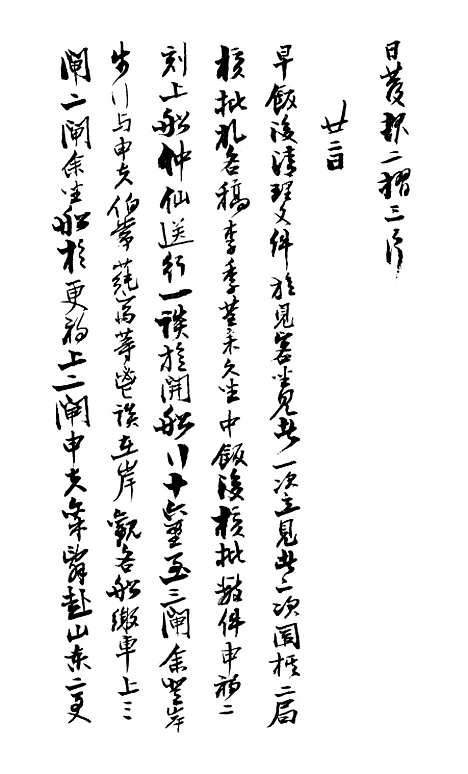 日發報二摺三片
廿二日
早飯後清理文件旋見客坐見者一次立見者二次圍棋二局
核批札各稿李季荃來久坐中飯後核批數件申初二
刻上船仲仙送行一談旋開船行十六里至三閘余登岸
步行与申夫伯常蒓齋等鬯談在岸觀各船繳車上三
閘二閘余坐船於更初上二閘申夫等皆赴山東二更